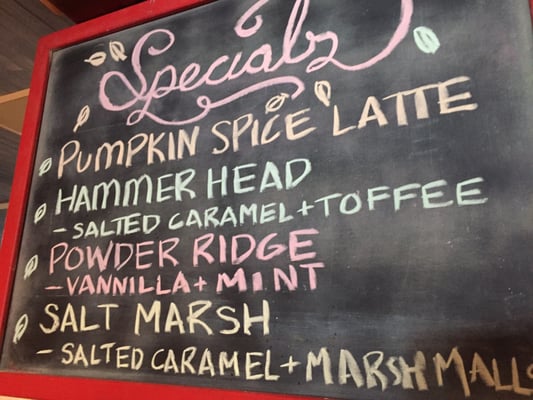 Specials
PUMPKIN SPICE LATTE
HAMMER HEAD
- SALTED CARAMEL + TOFFEE
POWDER RIDGE
- VANNILLA + MINT
SALT MARSH
- SALTED CARAMEL + MARSHMALLO